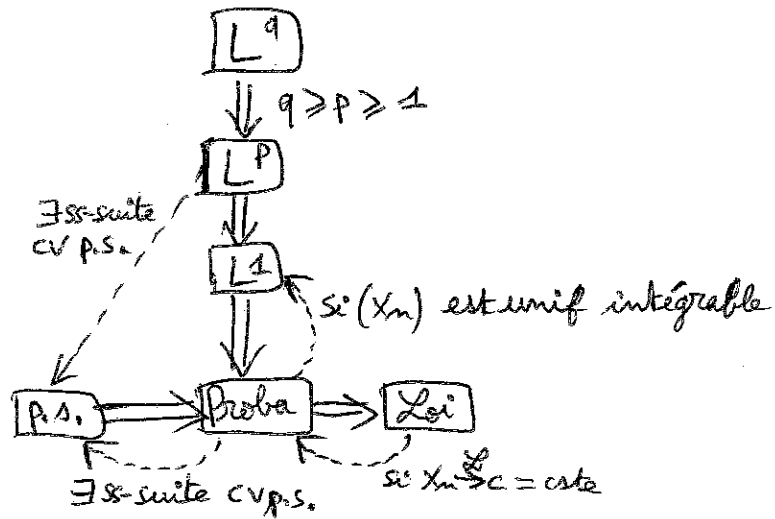 L^q
q ≥ p ≥ 1
L^p
∃ ss-suite
cv p.s.
L^1
si (Xn) est unif intégrable
p.s.
Proba
Loi
∃ ss-suite cv p.s.
si Xn →^ℒ c = cste